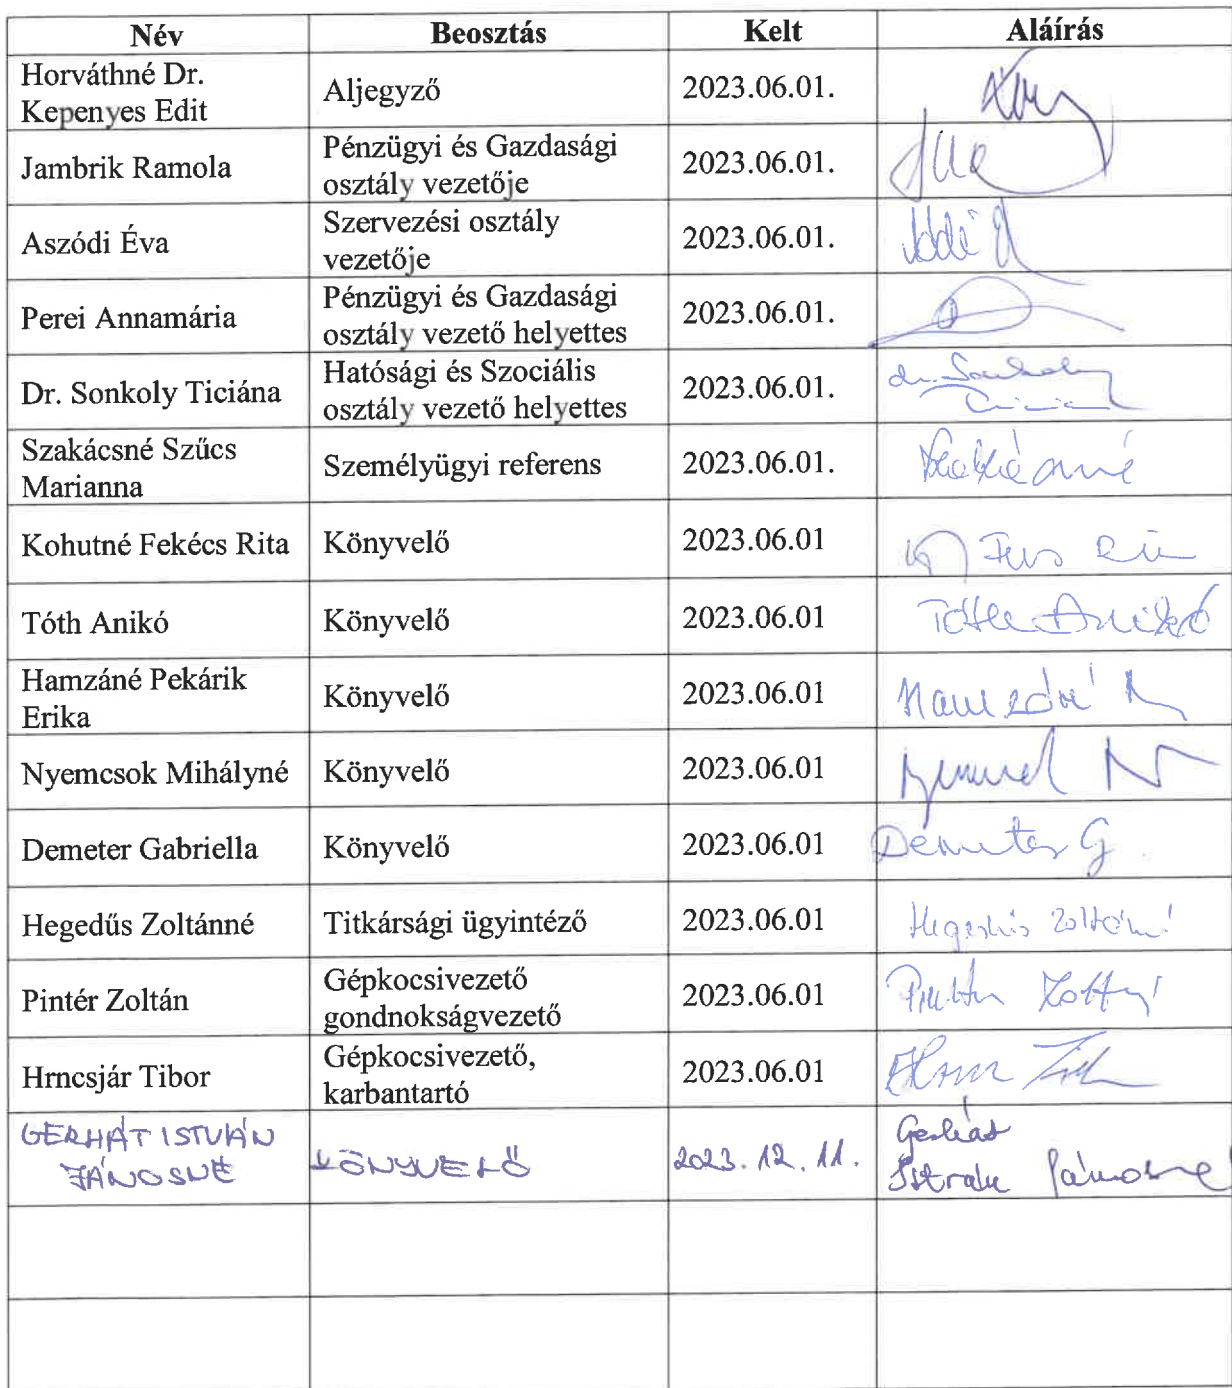 Név Beosztás Kelt Aláírás
Horváthné Dr.
Kepenyes Edit Aljegyző 2023.06.01.
Jambrik Ramola Pénzügyi és Gazdasági
osztály vezetője 2023.06.01.
Aszódi Éva Szervezési osztály
vezetője 2023.06.01.
Perei Annamária Pénzügyi és Gazdasági
osztály vezető helyettes 2023.06.01.
Dr. Sonkoly Ticiána Hatósági és Szociális
osztály vezető helyettes 2023.06.01. dr. Sonkoly
Szakácsné Szűcs
Marianna Személyügyi referens 2023.06.01.
Kohutné Fekécs Rita Könyvelő 2023.06.01
Tóth Anikó Könyvelő 2023.06.01 Tóth Anikó
Hamzáné Pekárik
Erika Könyvelő 2023.06.01
Nyemcsok Mihályné Könyvelő 2023.06.01
Demeter Gabriella Könyvelő 2023.06.01 Demeter G.
Hegedűs Zoltánné Titkársági ügyintéző 2023.06.01 Hegedűs Zoltánné
Pintér Zoltán Gépkocsivezető
gondnokságvezető 2023.06.01
Hrncsjár Tibor Gépkocsivezető,
karbantartó 2023.06.01
GERHÁT ISTVÁN
JÁNOSNÉ KÖNYVELŐ 2023.12.11. Gerhát
István Jánosné